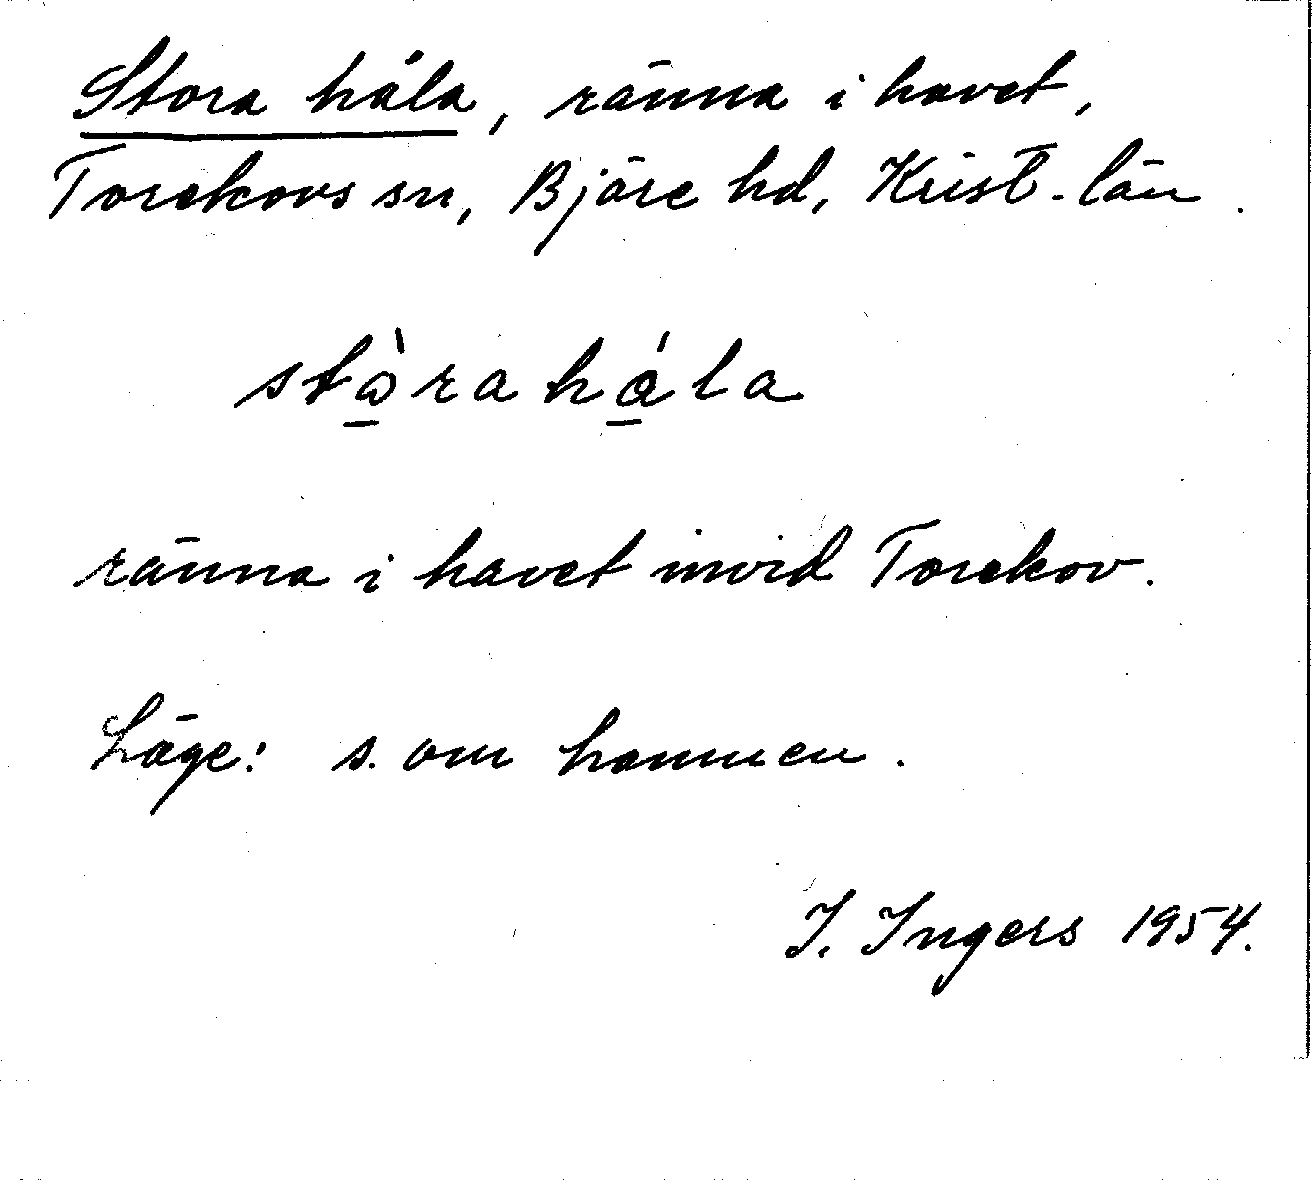 Stora håla, ränna i havet,
Torekovs sn, Bjäre hd, Krist.-län.
stòrahåla
ränna i havet invid Torekov.
Läge: s. om hamnen.
I. Ingers 1954.